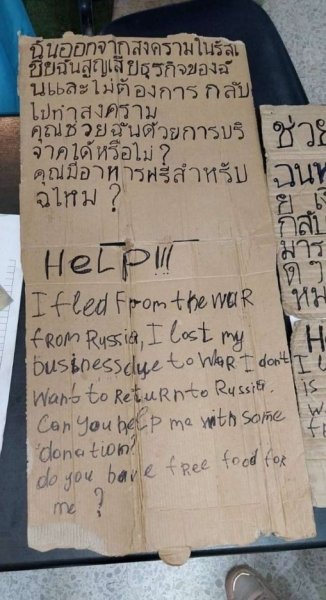 ฉันออกจากสงครามในรัสเ
ซียฉันสูญเสียธุรกิจของฉั
นและไม่ต้องการ กลับ
ไปทำสงคราม
คุณช่วยฉันด้วยการบริ
จาคได้หรือไม่?
คุณมีอาหารฟรีสำหรับ
ฉไหม ?
HeLP!!!
I fled From the waR
fRom Russia, I lost my
business due to waR I don't
Want to ReturN to Russia.
Can you help me with some
donation?
do you have fRee food foR
me ?
ช่วย
ฉัน
กลับ
มาร
He
I
is